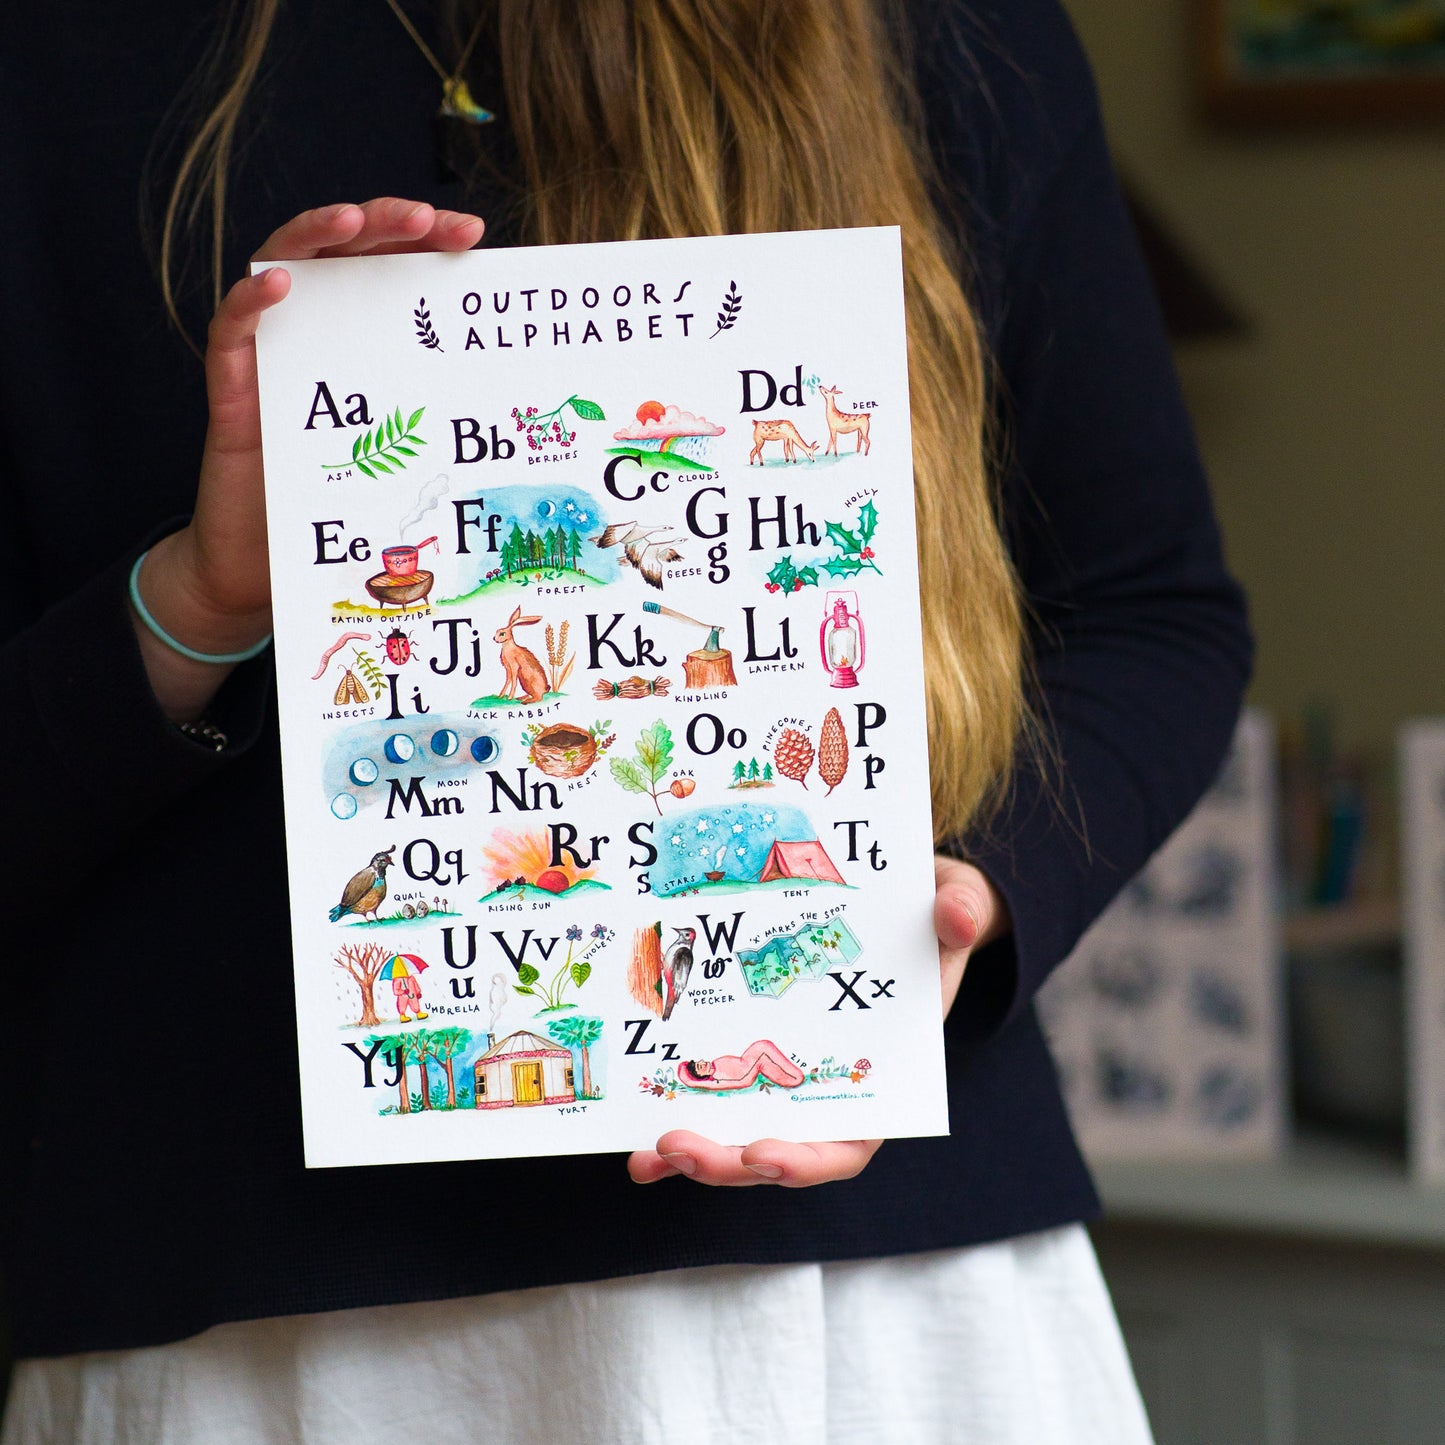 OUTDOORS
ALPHABET
Aa
ASH
Bb
BERRIES
Cc
CLOUDS
Dd
DEER
Ee
EATING OUTSIDE
Ff
FOREST
G
g
GEESE
Hh
HOLLY
Ii
INSECTS
Jj
JACK RABBIT
Kk
KINDLING
Ll
LANTERN
Mm
MOON
Nn
NEST
Oo
OAK
P
p
PINECONES
Qq
QUAIL
Rr
RISING SUN
S
s
STARS
Tt
TENT
U
u
UMBRELLA
Vv
VIOLETS
W
w
WOOD-
PECKER
'X' MARKS THE SPOT
Xx
Yy
YURT
Zz
ZIP
@jessicaevewatkins.com